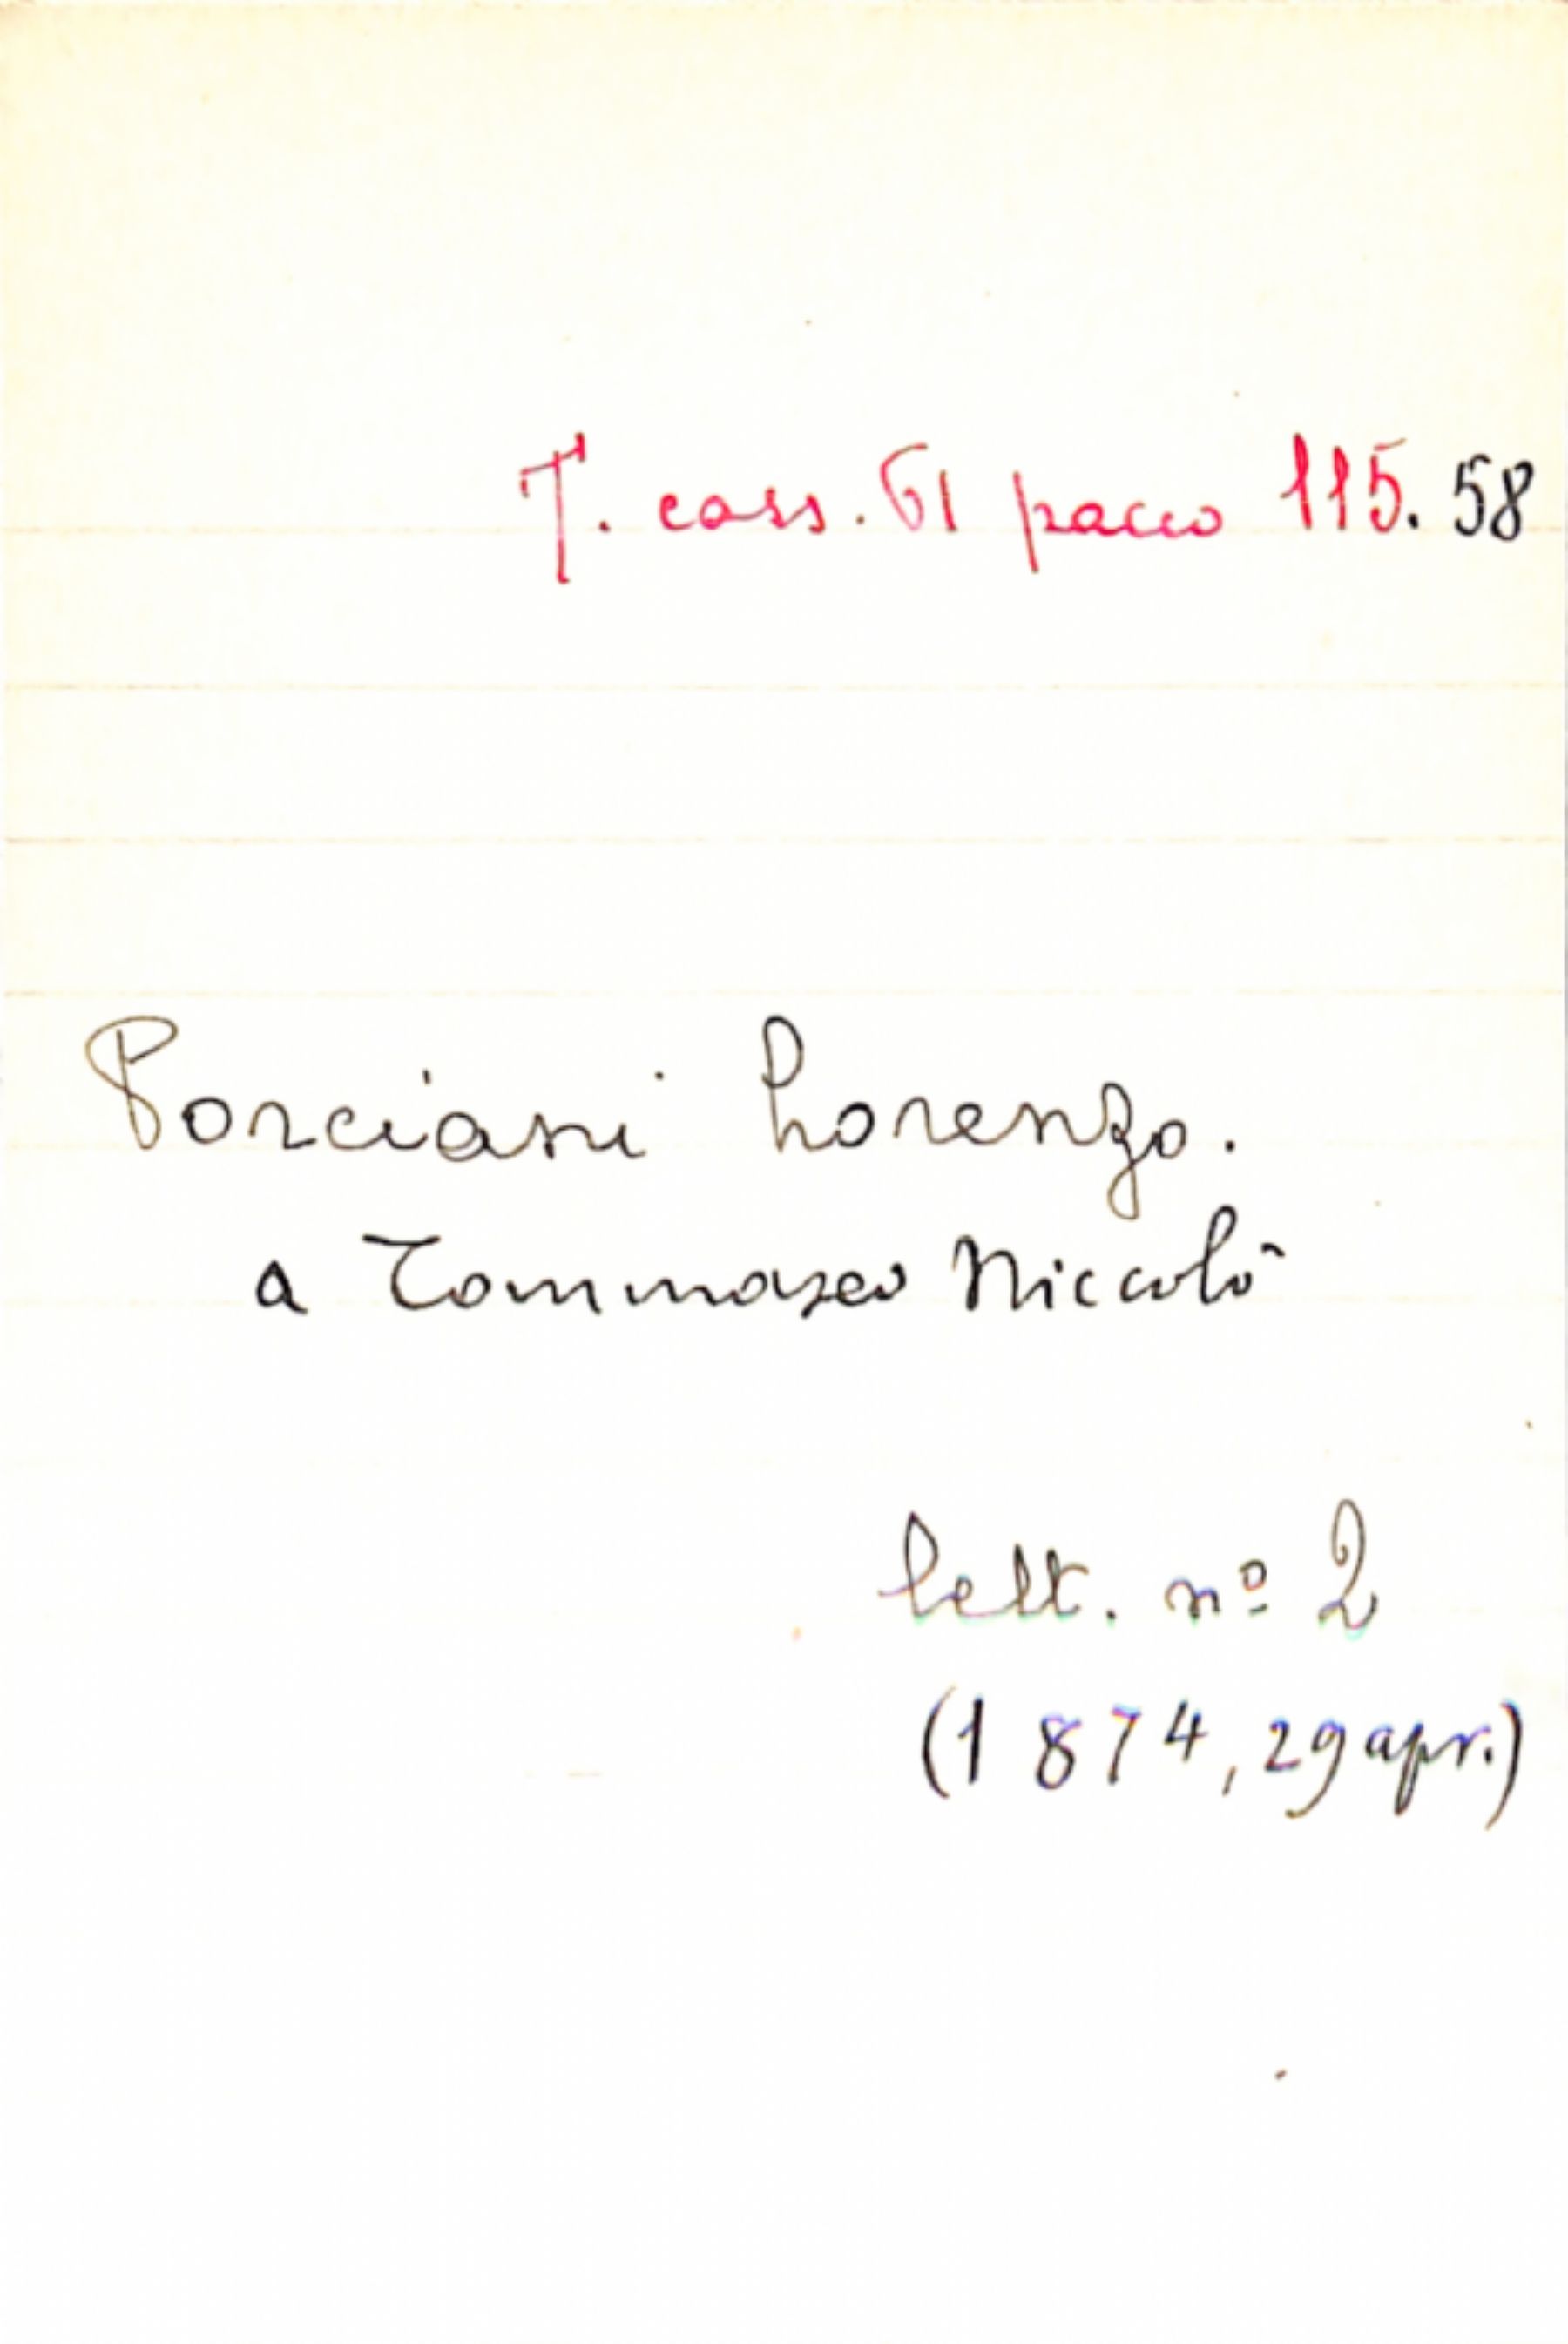 T. cass. 61 pacco 115. 58
Porciani Lorenzo.
a Tommaseo Niccolò
lett. nº 2
(1874, 29 apr.)